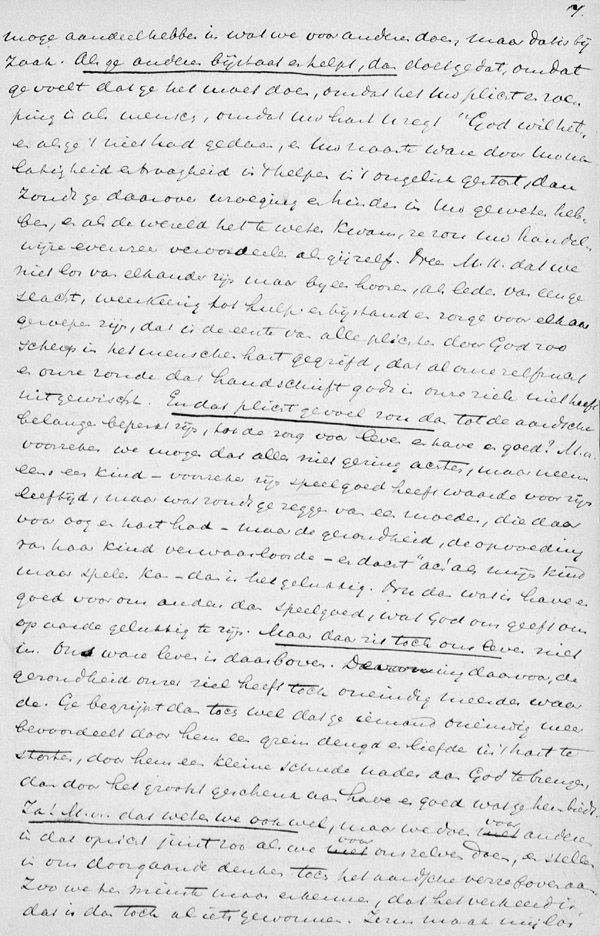 7.
moge aandeel hebben in wat we voor anderen doen, maar dat is bij
zaak. Als ge anderen bijstaat en helpt, dan doet ge dat, omdat
ge voelt dat ge het moet doen, omdat het Uw plicht en roe-
ping is als mensch, omdat Uw hart U zegt "God wil het,
en als ge 't niet had gedaan, en Uw naaste ware door Uw na
latigheid en traagheid in 't helpen in 't ongeluk gestort, dan
zoudt ge daarover wroeging en hinder in Uw geweten heb-
ben, en als de wereld het te weten kwam, ze zou Uw handel-
wijze evenzeer veroordeelen als gijzelf. Dan M. H. dat we
niet los van elkander zijn maar bijeen hooren, als leden van een ge
slacht, weerkeerig tot hulp en bijstand en zorge voor elkaar
geroepen zijn, dat is de eerste van alle plichten door God zoo
scherp in het menschenhart gegrifd, dat al onze zelfzucht
en onze zonde dat handschrift gods in onze ziele niet heeft
uitgewischt. En dat plichtgevoel zou dan tot de aardsche
belangen beperkt zijn, tot de zorg voor leven en have en goed? M. H.
voorzeker we mogen dat alles niet gering achten, maar neem
eens een kind – voorzeker zijn speelgoed heeft waarde voor zijn
leeftijd, maar wat zoudt ge zeggen van een moeder, die daar
voor oog en hart had – maar de gezondheid, de opvoeding
van haar kind verwaarloosde – en dacht "ach als mijn kind
maar spelen kan – dan is het gelukkig. En dan wat is have en
goed voor ons anders dan speelgoed, wat God ons geeft om
op aarde gelukkig te zijn. Maar daar zit toch ons leven niet
in. Ons ware leven is daarboven. daarvoor, de
gezondheid onzer ziel heeft toch oneindig meerder waar
de. Ge begrijpt dan toch wel dat ge iemand oneindig meer
bevoordeelt door hem een grein deugd en liefde in 't hart te
storten, door hem een kleine schrede nader aan God te brengen,
dan door het grootst geschenk aan have en goed wat ge hem biedt.
Ja! M. H. dat weten we ook wel, maar we doen voor anderen
in dat opzicht juist zoo als we voor ons zelven doen, en stellen
in ons doorgaande denken toch het aardsche verre bovenaan.
Zoo we ten minste maar erkennen, dat het verkeerd is
dat is dan toch al iets gewonnen.